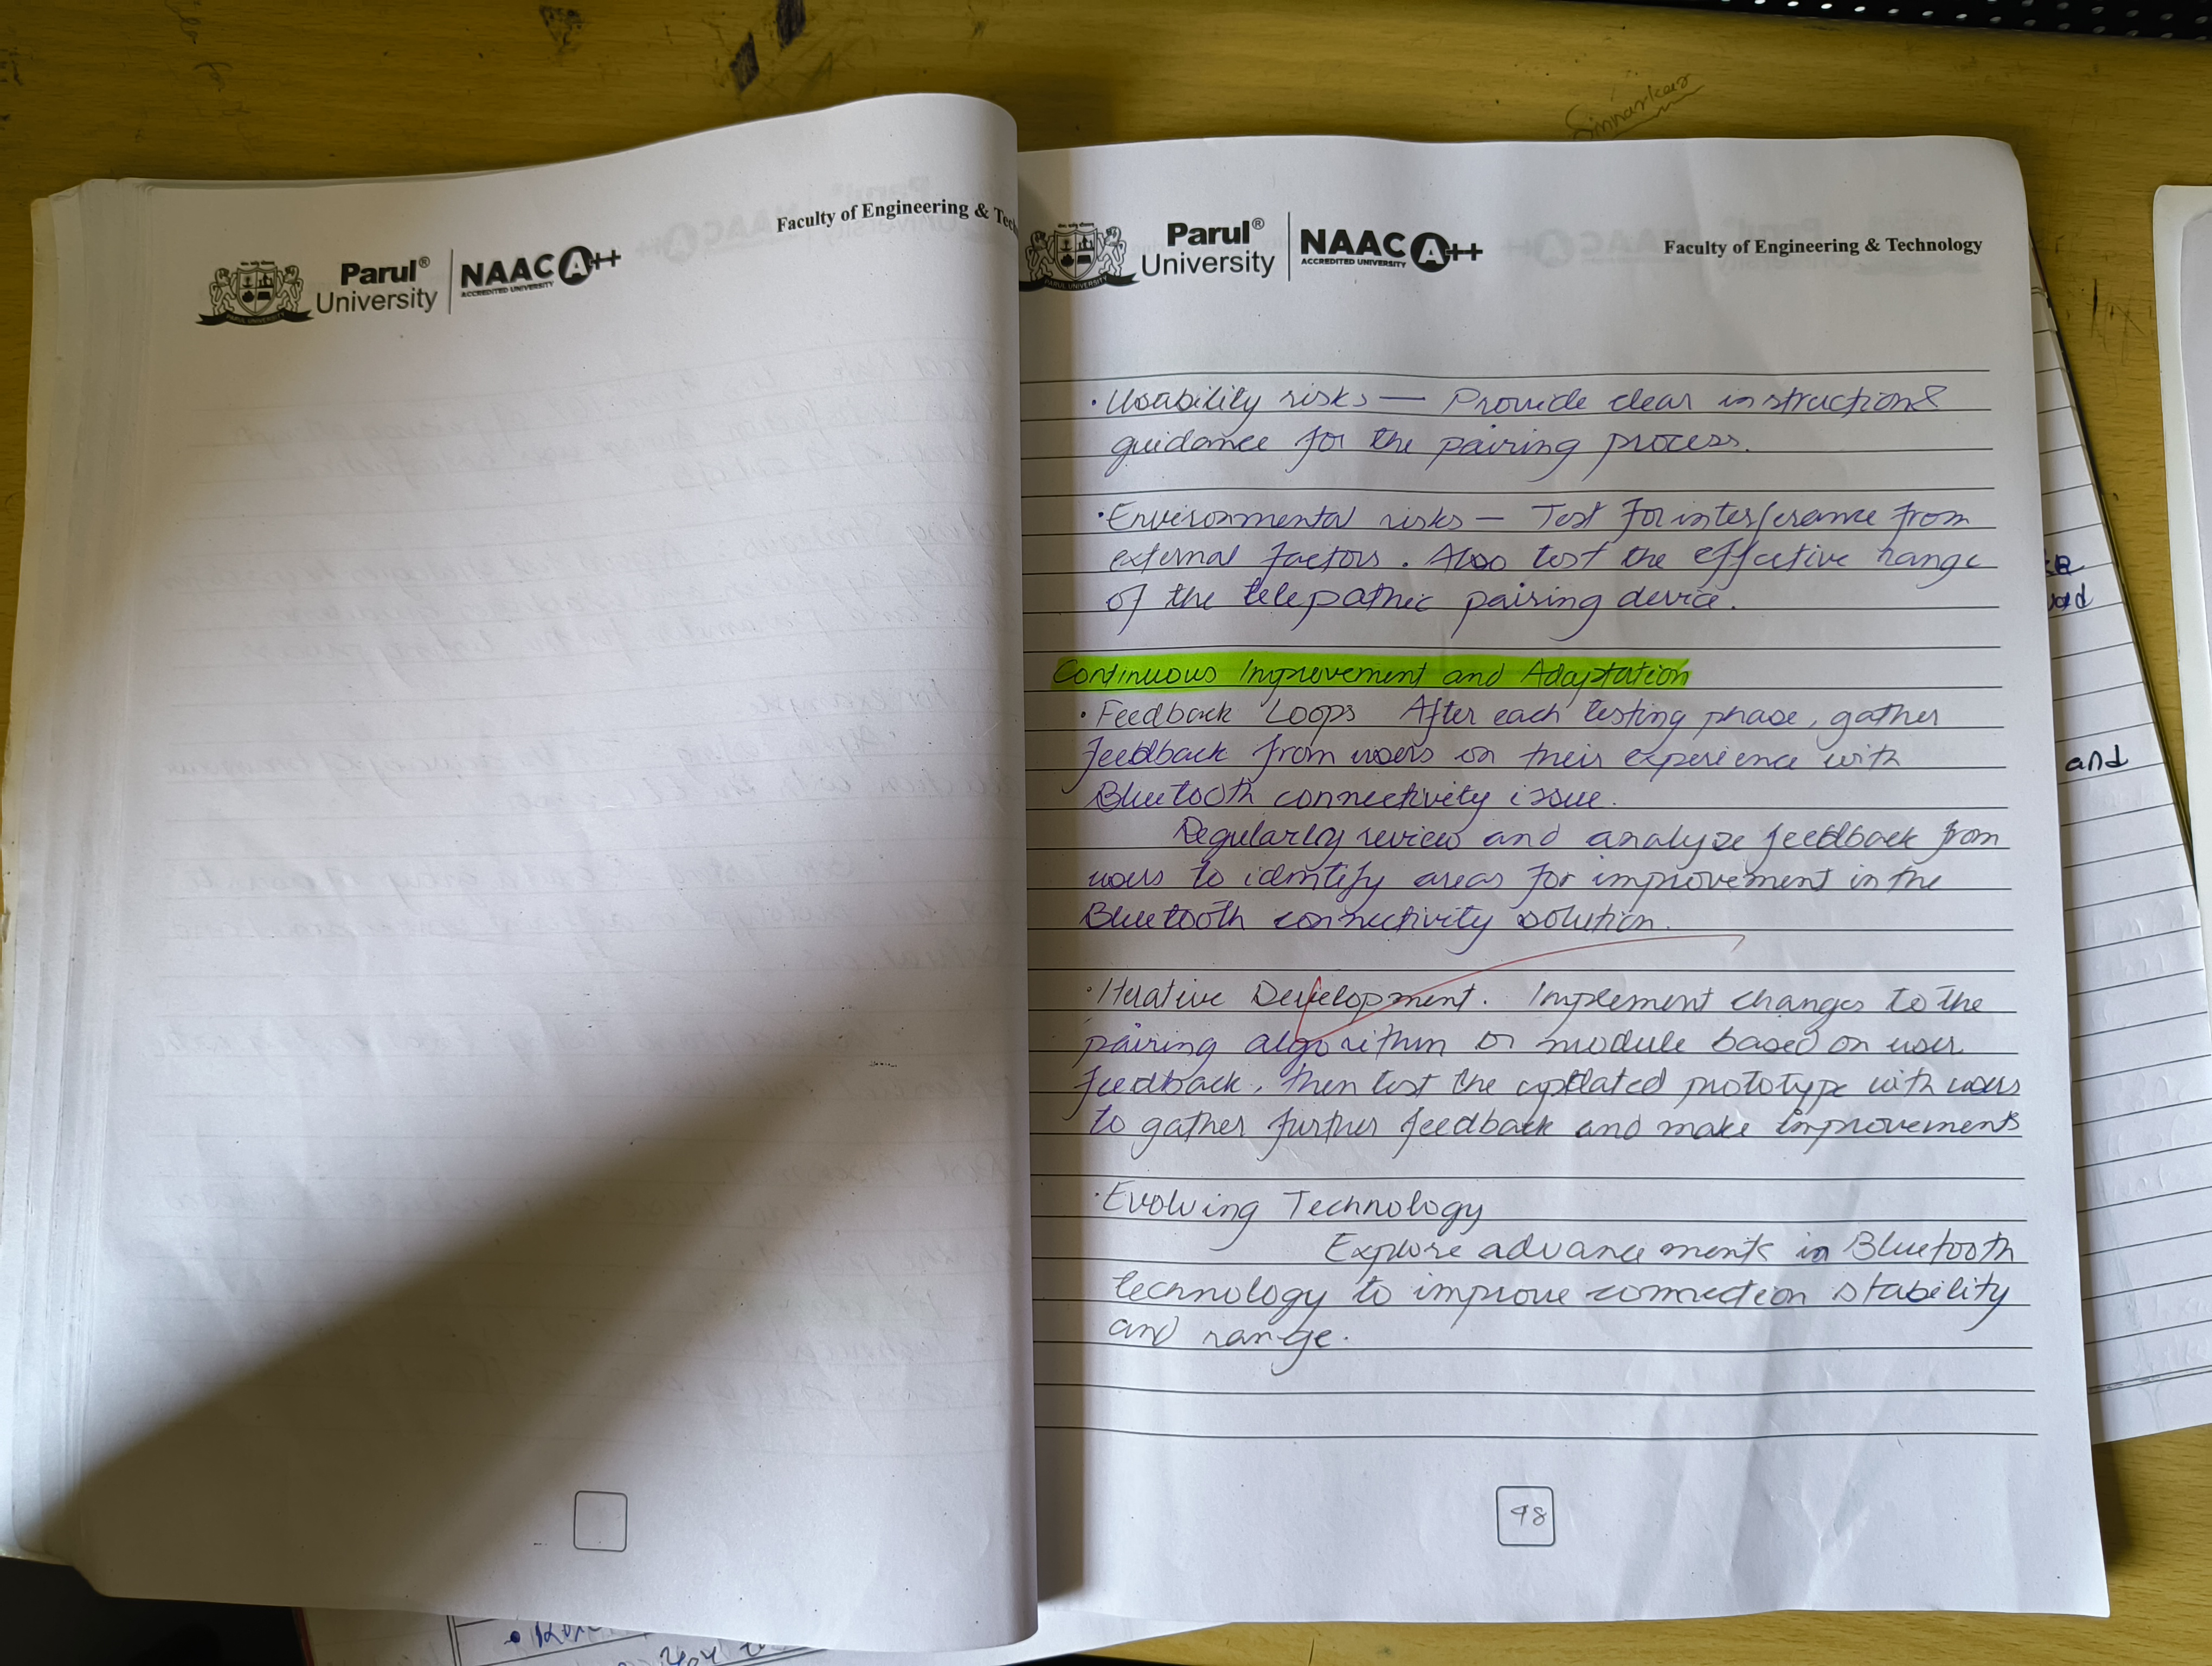 Sinnarkar
Faculty of Engineering & Tec
Parul®
University
NAAC A++
ACCREDITED UNIVERSITY
PARUL UNIVERSITY
Parul®
University
NAAC A++
ACCREDITED UNIVERSITY
PARUL UNIVERSITY
Faculty of Engineering & Technology
• Usability risks — Provide clear instruction &
guidance for the pairing process.
• Environmental risks — Test for interferance from
external factors. Also test the effective range
of the telepathic pairing device.
Continuous Improvement and Adaptation
• Feedback Loops After each testing phase, gather
feedback from users on their experience with
Bluetooth connectivity issue.
Regularly review and analyze feedback from
users to identify areas for improvement in the
Bluetooth connectivity solution.
• Iterative Development. Implement changes to the
pairing algorithm or module based on user
feedback, then test the updated prototype with users
to gather further feedback and make improvements
• Evolving Technology
Explore advancements in Bluetooth
technology to improve connection stability
and range.
48
and